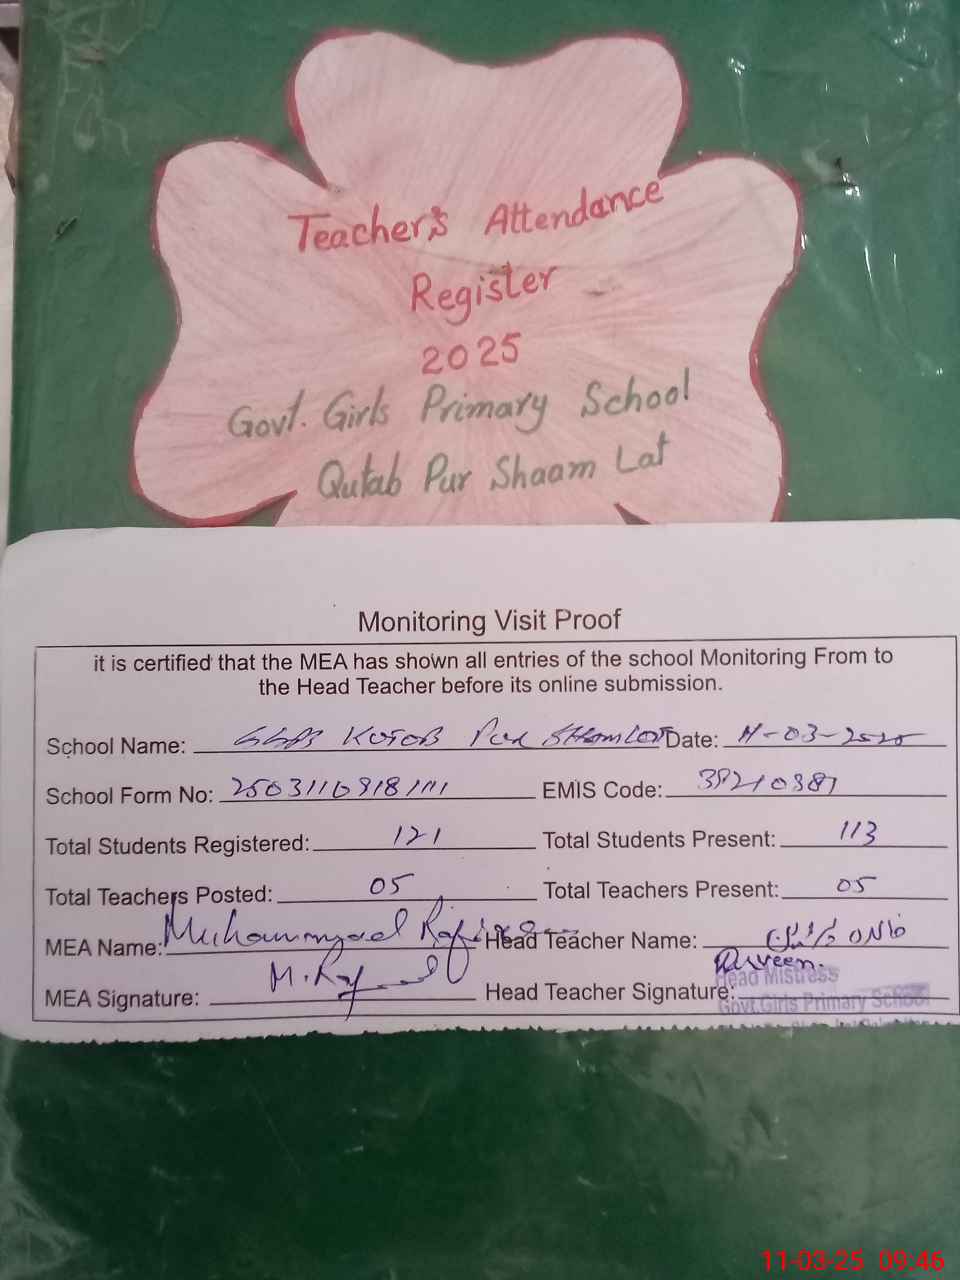 Teacher's Attendance
Register
2025
Govt. Girls Primary School
Qutab Pur Shaam Lat
Monitoring Visit Proof
it is certified that the MEA has shown all entries of the school Monitoring From to
the Head Teacher before its online submission.
School Name: GGPS KOTOB Pur SHamLot Date: 11-03-2025
School Form No: EMIS Code:
Total Students Registered: 121 Total Students Present: 113
Total Teachers Posted: 05 Total Teachers Present: 05
MEA Name: Muhammad Head Teacher Name:
Parveen.
Head Mistress
MEA Signature: M. Head Teacher Signature:
Govt.Girls Primary School
11-03-25 09:46